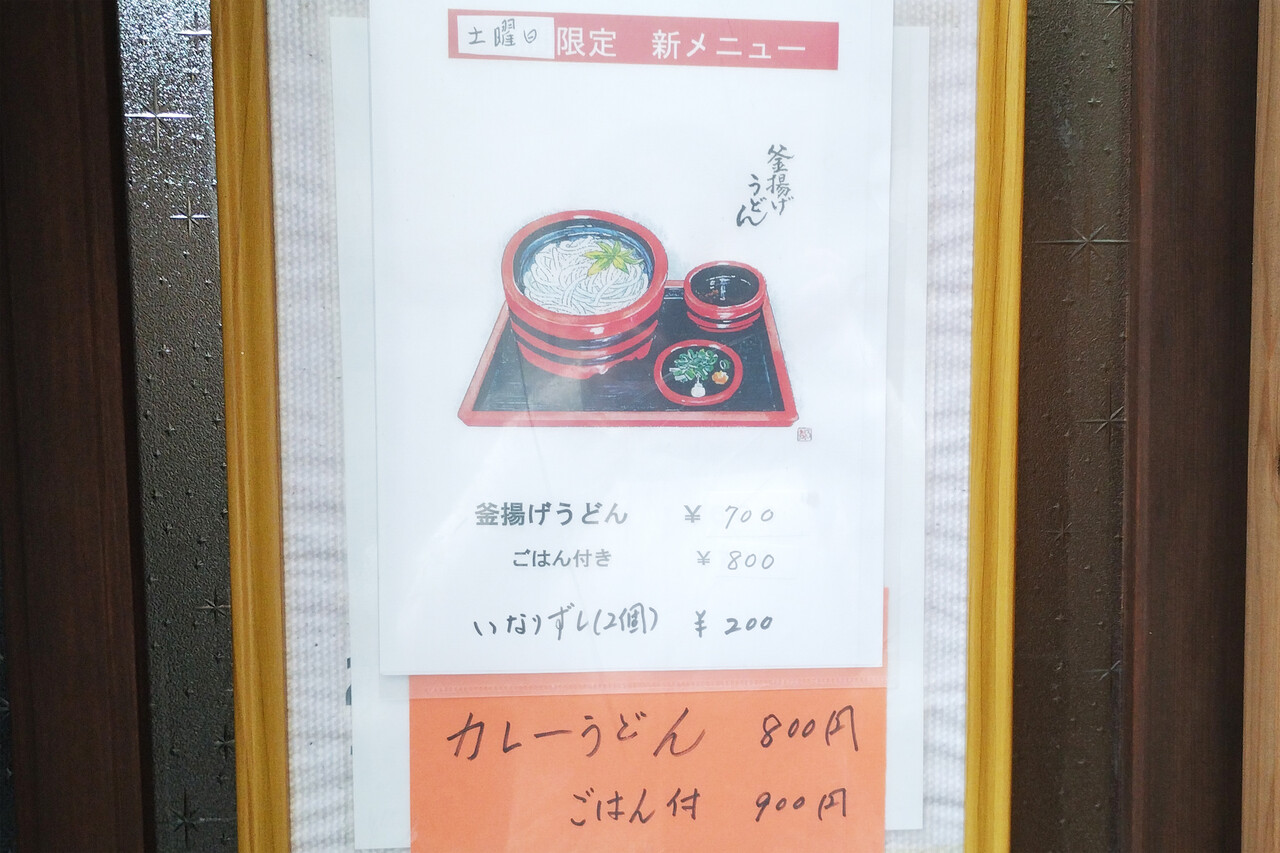 土曜日限定 新メニュー
釜揚げ
うどん
釜揚げうどん ¥ 700
ごはん付き ¥ 800
いなりずし(2個) ¥ 200
カレーうどん 800円
ごはん付 900円